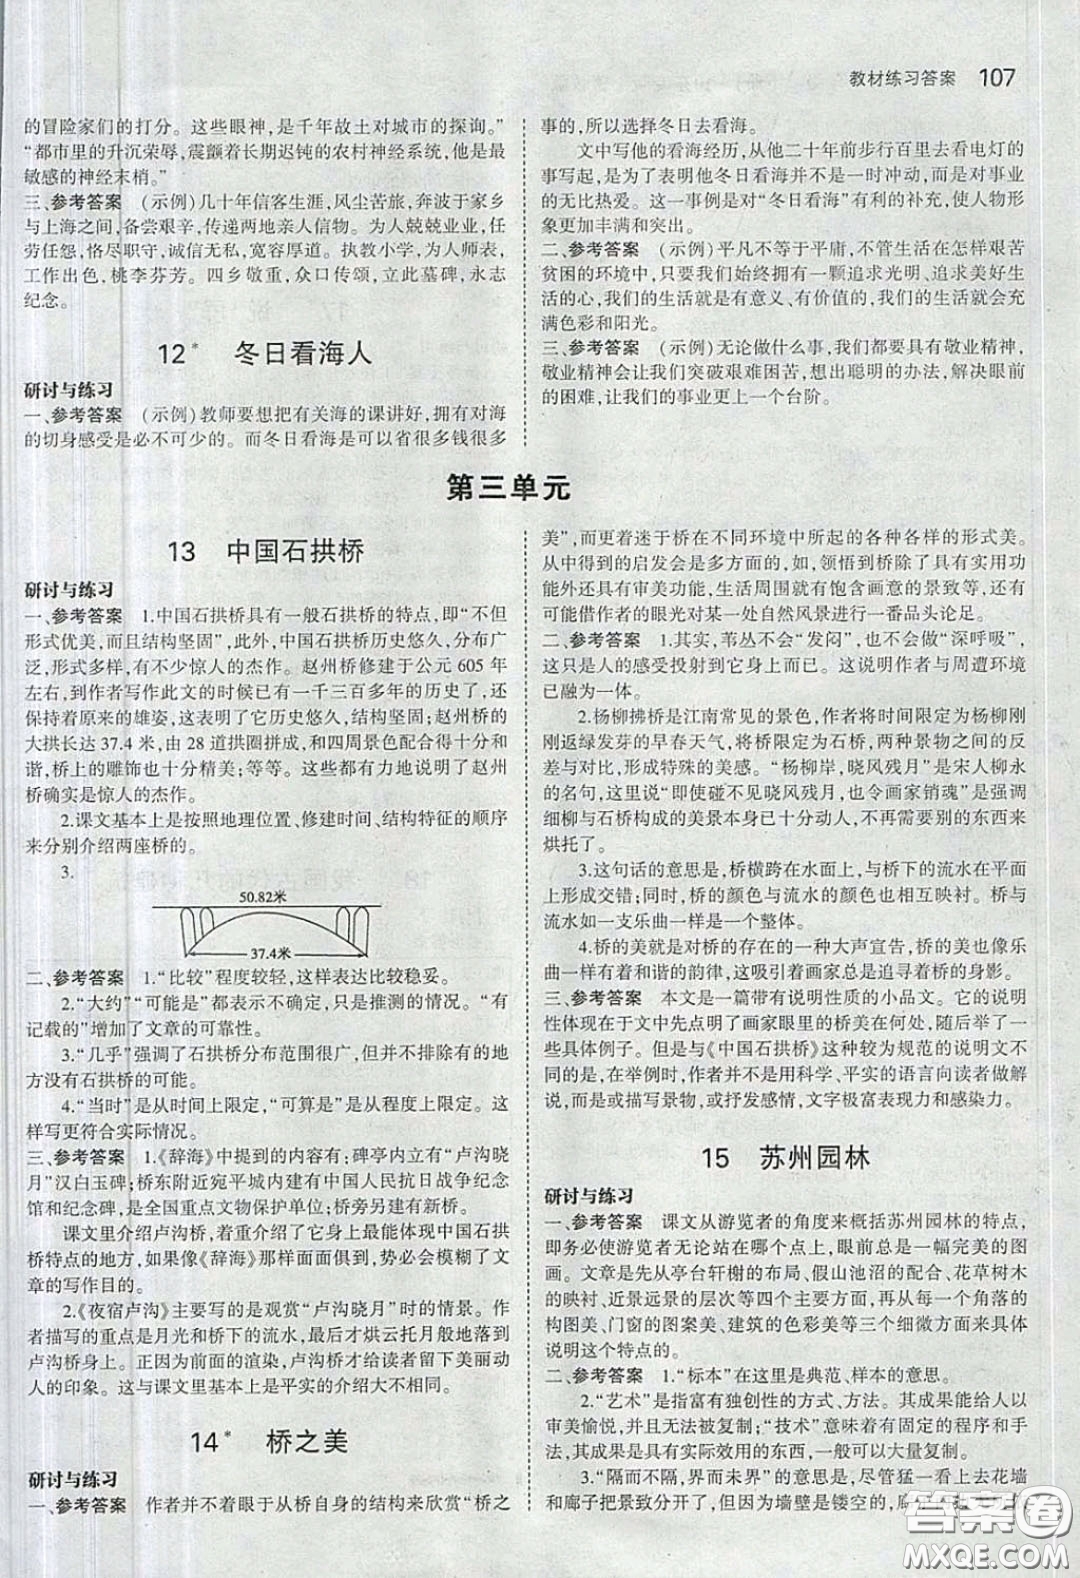 教材练习答案 107
的冒险家们的打分。这些眼神，是千年故土对城市的探询。”
“都市里的升沉荣辱，震颤着长期迟钝的农村神经系统，他是最
敏感的神经末梢。”
三、参考答案 （示例）几十年信客生涯，风尘苦旅，奔波于家乡
与上海之间，备尝艰辛，传递两地亲人信物。为人兢兢业业，任
劳任怨，恪尽职守，诚信无私，宽容厚道。执教小学，为人师表，
工作出色，桃李芬芳。四乡敬重，众口传颂，立此墓碑，永志
纪念。
12* 冬日看海人
研讨与练习
一、参考答案 （示例）教师要想把有关海的课讲好，拥有对海
的切身感受是必不可少的。而冬日看海是可以省很多钱很多
事的，所以选择冬日去看海。
文中写他的看海经历，从他二十年前步行百里去看电灯的
事写起，是为了表明他冬日看海并不是一时冲动，而是对事业
的无比热爱。这一事例是对“冬日看海”有利的补充，使人物形
象更加丰满和突出。
二、参考答案 （示例）平凡不等于平庸，不管生活在怎样艰苦
贫困的环境中，只要我们始终拥有一颗追求光明、追求美好生
活的心，我们的生活就是有意义、有价值的，我们的生活就会充
满色彩和阳光。
三、参考答案 （示例）无论做什么事，我们都要具有敬业精神，
敬业精神会让我们突破艰难困苦，想出聪明的办法，解决眼前
的困难，让我们的事业更上一个台阶。
第三单元
13 中国石拱桥
研讨与练习
一、参考答案 1.中国石拱桥具有一般石拱桥的特点，即“不但
形式优美，而且结构坚固”，此外，中国石拱桥历史悠久，分布广
泛，形式多样，有不少惊人的杰作。赵州桥修建于公元 605 年
左右，到作者写作此文的时候已经有一千三百多年的历史了，还
保持着原来的雄姿，这表明了它历史悠久，结构坚固；赵州桥的
大拱长达 37.4 米，由 28 道拱圈拼成，和四周景色配合得十分和
谐，桥上的雕饰也十分精美；等等。这些都有力地说明了赵州
桥确实是惊人的杰作。
2.课文基本上是按照地理位置、修建时间、结构特征的顺序
来分别介绍两座桥的。
3.
50.82米
37.4米
二、参考答案 1.“比较”程度较轻，这样表达比较稳妥。
2.“大约”“可能是”都表示不确定，只是推测的情况。“有
记载的”增加了文章的可靠性。
3.“几乎”强调了石拱桥分布范围很广，但并不排除有的地
方没有石拱桥的可能。
4.“当时”是从时间上限定，“可算是”是从程度上限定。这
样写更符合实际情况。
三、参考答案 1.《辞海》中提到的内容有：碑亭内立有“卢沟晓
月”汉白玉碑；桥东附近宛平城内建有中国人民抗日战争纪念
馆和纪念碑，是全国重点文物保护单位；桥旁另建有新桥。
课文里介绍卢沟桥，着重介绍了它身上最能体现中国石拱
桥特点的地方，如果像《辞海》那样面面俱到，势必会模糊了文
章的写作目的。
2.《夜宿卢沟》主要写的是观赏“卢沟晓月”时的情景。作
者描写的重点是月光和桥下的流水，最后才烘云托月般地落到
卢沟桥身上。正因为前面的渲染，卢沟桥才给读者留下美丽动
人的印象。这与课文里基本上是平实的介绍大不相同。
14* 桥之美
研讨与练习
一、参考答案 作者并不着眼于从桥自身的结构来欣赏“桥之
美”，而更多地迷于桥在不同环境中所起的各种各样的形式美。
从中得到的启发会是多方面的，如，领悟到桥除了具有实用功
能外还具有审美功能，生活周围就有饱含画意的景致等，还有
可能借作者的眼光对某一处自然风景进行一番品头论足。
二、参考答案 1.其实，苇丛不会“发闷”，也不会做“深呼吸”，
这只是人的感受投射到它身上而已。这说明作者与周遭环境
已融为一体。
2.杨柳拂桥是江南常见的景色，作者将时间限定为杨柳刚
刚返绿发芽的早春天气，将桥限定为石桥，两种景物之间的反
差与对比，形成特殊的美感。“杨柳岸，晓风残月”是宋人柳永
的名句，这里说“即使碰不见晓风残月，也令画家销魂”是强调
细柳与石桥构成的美景本身已十分动人，不再需要别的东西来
烘托了。
3.这句话的意思是，桥横跨在水面上，与桥下的流水在平面
上形成交错；同时，桥的颜色与流水的颜色也相互映衬。桥与
流水如一支乐曲一样是一个整体。
4.桥的美就是对桥的存在的一种大声宣告，桥的美也像乐
曲一样有着和谐的韵律，这吸引着画家总是追寻着桥的身影。
三、参考答案 本文是一篇带有说明性质的小品文。它的说明
性体现在于文中先点明了画家眼里的桥美在何处，随后举了一
些具体例子。但是与《中国石拱桥》这种较为规范的说明文不
同的是，在举例时，作者并不是用科学、平实的语言向读者做解
说，而是或描写景物，或抒发感情，文字极富表现力和感染力。
15 苏州园林
研讨与练习
一、参考答案 课文从游览者的角度来概括苏州园林的特点，
即务必使游览者无论站在哪个点上，眼前总是一幅完美的图
画。文章是先从亭台轩榭的布局、假山池沼的配合、花草树木
的映衬、近景远景的层次等四个主要方面，再从每一个角落的
构图美、门窗的图案美、建筑的色彩美等三个细微方面来具体
说明这个特点的。
二、参考答案 1.“标本”在这里是典范、样本的意思。
2.“艺术”是指富有独创性的方式、方法。其成果能给人以
审美愉悦，并且无法被复制；“技术”意味着有固定的程序和手
法，其成果是具有实际效用的东西，一般可以大量复制。
3.“隔而不隔，界而未界”的意思是，尽管猛一看是在花墙
和廊子把景致分开了，但因为墙壁是镂空的，
答案圈
MXQE.COM